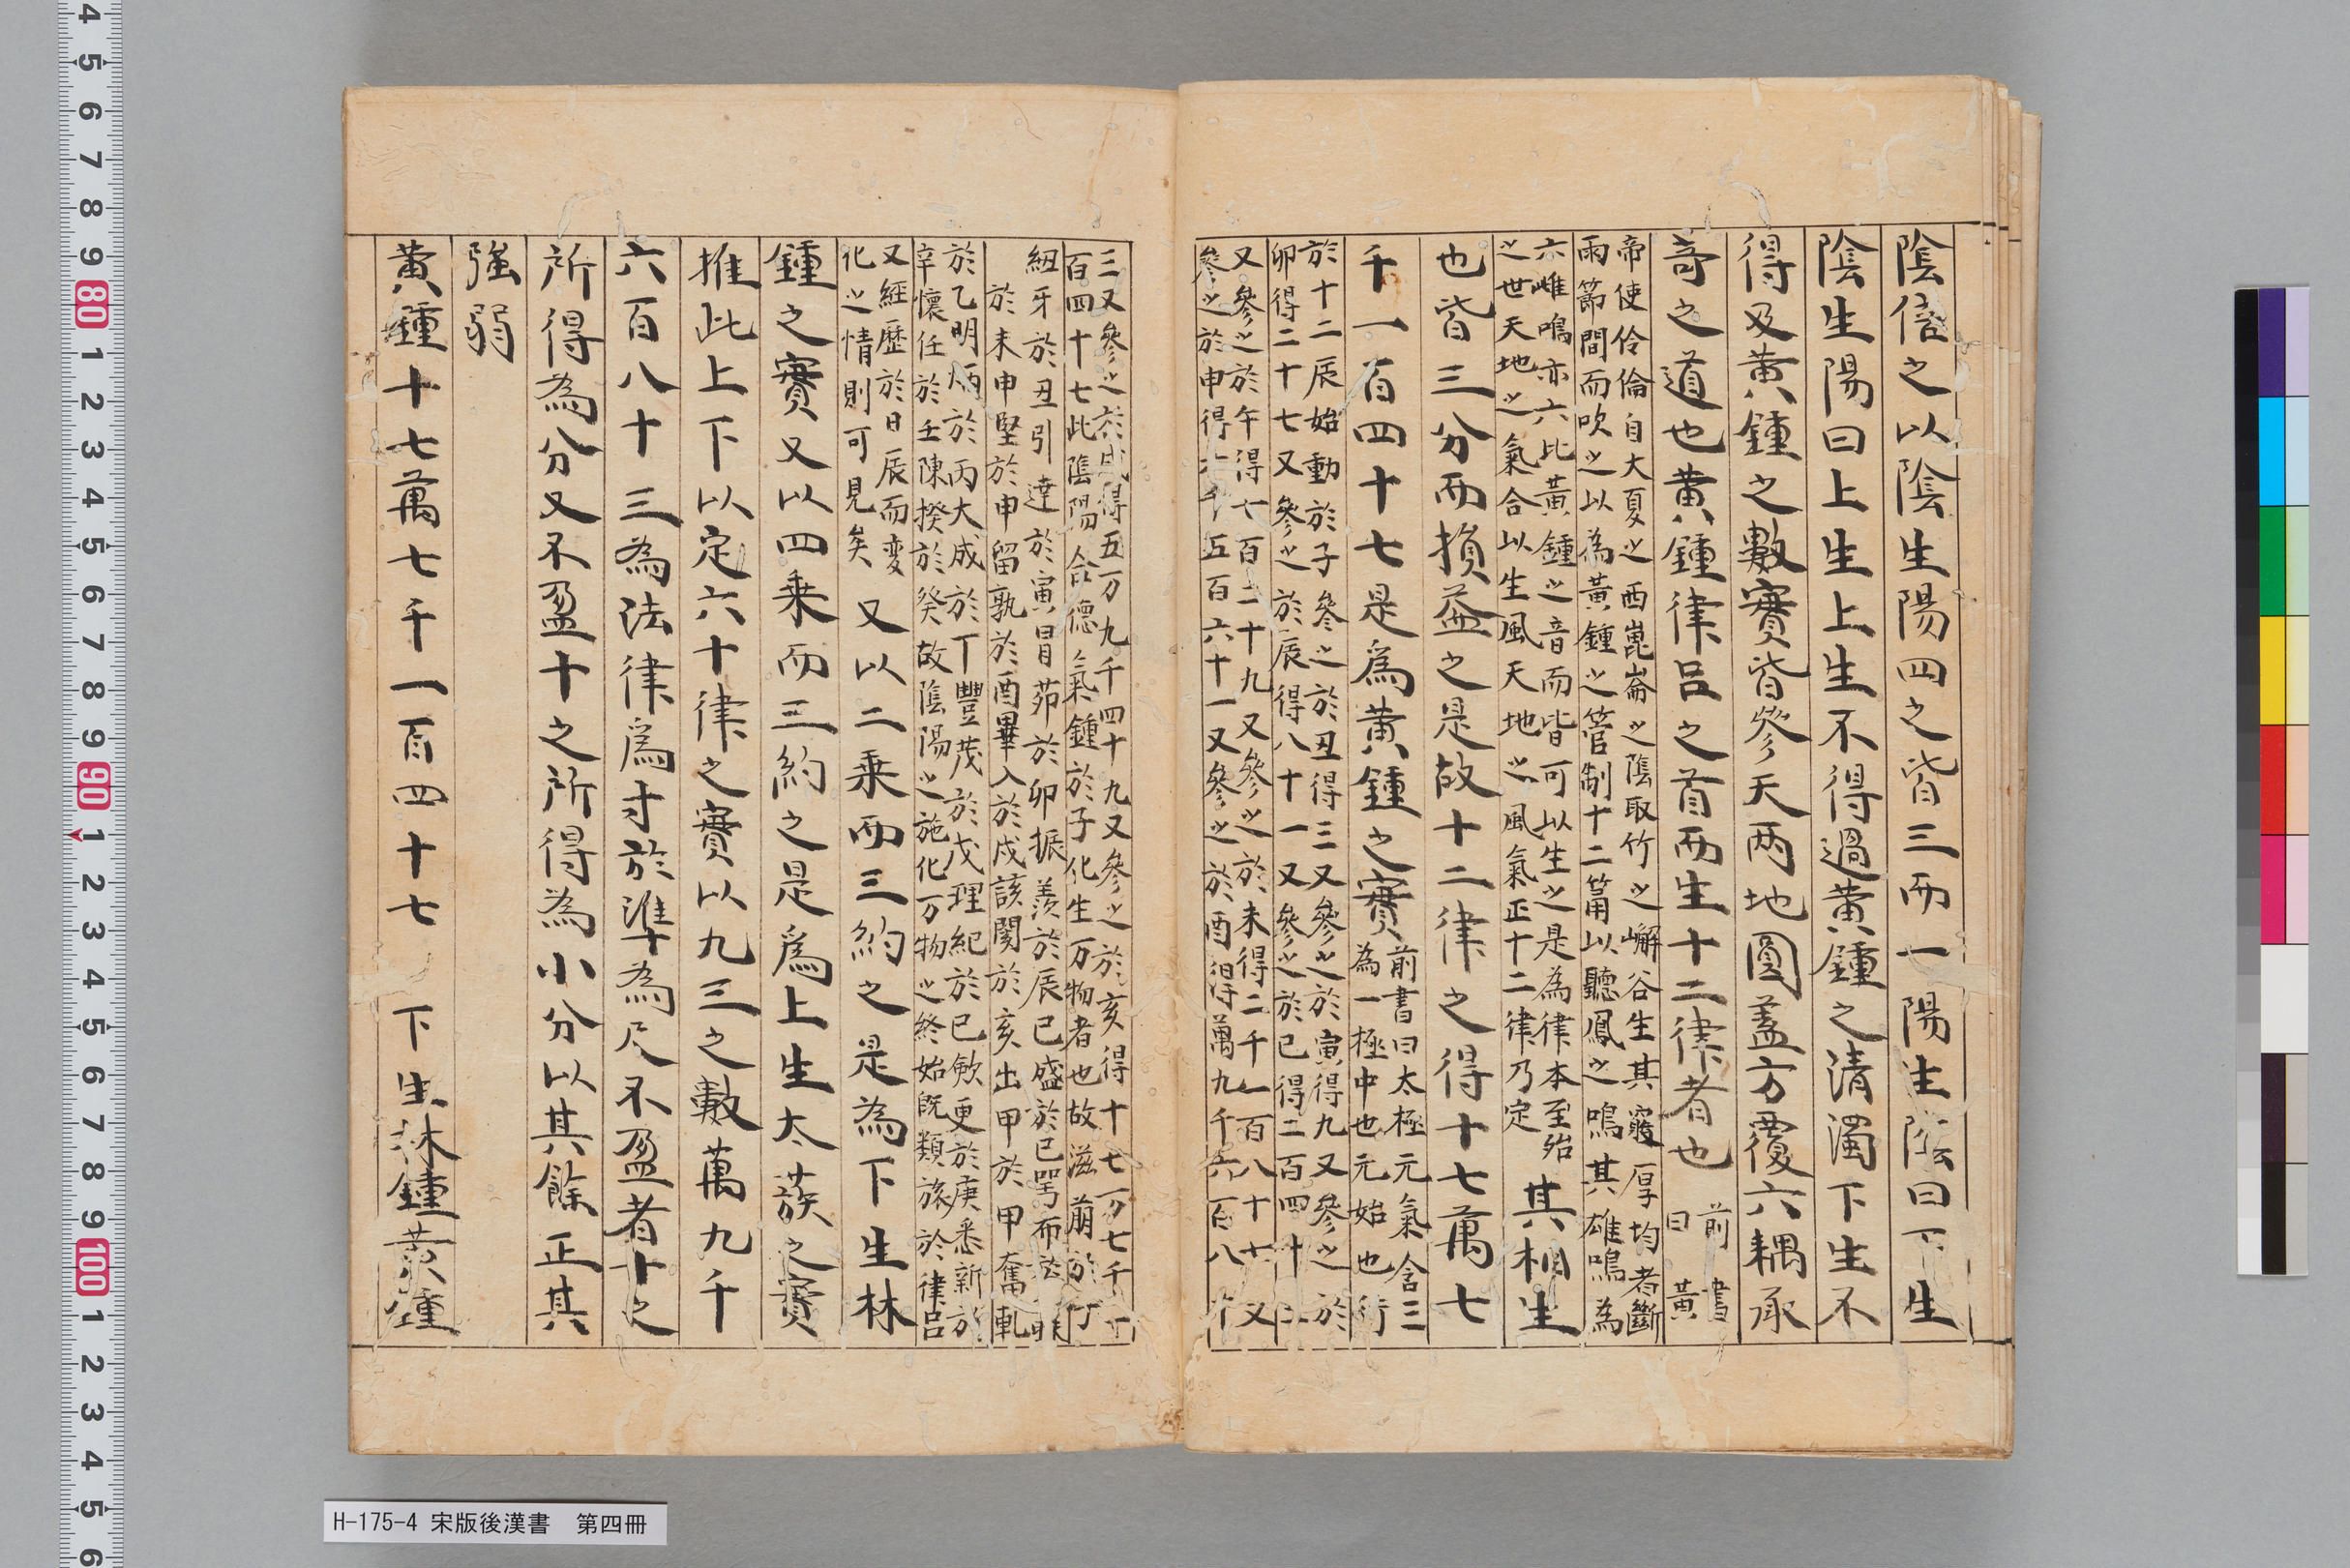 陰倍之以陰生陽四之皆三而一陽生陰曰下生
陰生陽曰上生上生不得過黃鍾之清濁下生不
得及黃鍾之數實皆參天兩地圓蓋方覆六耦承
奇之道也黃鍾律呂之首而生十二律者也
前書
曰黃
帝使伶倫自大夏之西崑崙之陰取竹之嶰谷生其竅厚均者斷
兩節間而吹之以為黃鍾之管制十二筩以聽鳳之鳴其雄鳴為
六雌鳴亦六比黃鍾之音而皆可以生之是為律本至治
之世天地之氣合以生風天地之風氣正十二律乃定
其相生
也皆三分而損益之是故十二律之得十七萬七
千一百四十七是爲黃鍾之實
前書曰太極元氣含三
為一極中也元始也行
於十二辰始動於子參之於丑得三又參之於寅得九又參之於
卯得二十七又參之於辰得八十一又參之於巳得二百四十三
又參之於午得七百二十九又參之於未得二千一百八十七又
參之於申得六千五百六十一又參之於酉得萬九千六百八十
三又參之於戌得五万九千四十九又參之於亥得十七万七千一
百四十七此陰陽合德氣鍾於子化生万物者也故滋萌於子
紐牙於丑引達於寅冒茆於卯振羨於辰巳盛於巳咢布於午昧
於未申堅於申留孰於酉畢入於戌該閡於亥出甲於甲奮軋
於乙明炳於丙大成於丁豐茂於戊理紀於己斂更於庚悉新於
辛懷任於壬陳揆於癸故陰陽之施化万物之終始既類旅於律呂
又經歷於日辰而変
化之情則可見矣
又以二乘而三約之是為下生林
鍾之實又以四乘而三約之是爲上生太蔟之實
推此上下以定六十律之實以九三之數萬九千
六百八十三為法律爲寸於準為尺不盈者十之
所得為分又不盈十之所得為小分以其餘正其
強弱
黃鍾十七萬七千一百四十七 下生林鍾黃鍾
H-175-4 宋版後漢書 第四冊